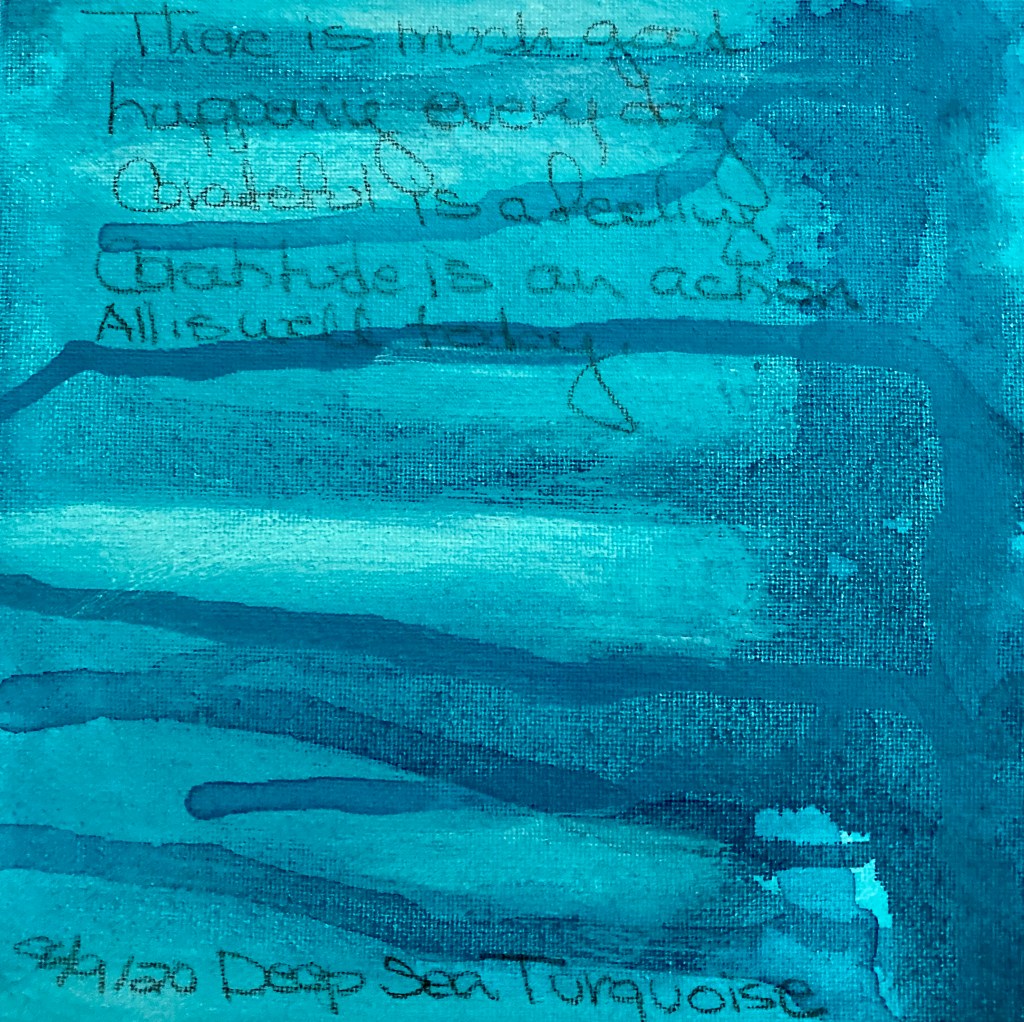 There is much good
happening every day
Grateful is a feeling
Gratitude is an action
All is well today.
Deep Sea Turquoise